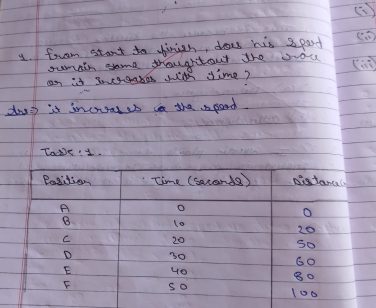 (i)
(ii)
(iii)
1. From start to finish, does his speed
remain same thoughtout the race
or it increases with time?
Ans⇒ it increases the speed.
Task: 1.
Position Time (seconds) Distance
A 0 0
B 10 20
C 20 50
D 30 60
E 40 80
F 50 100